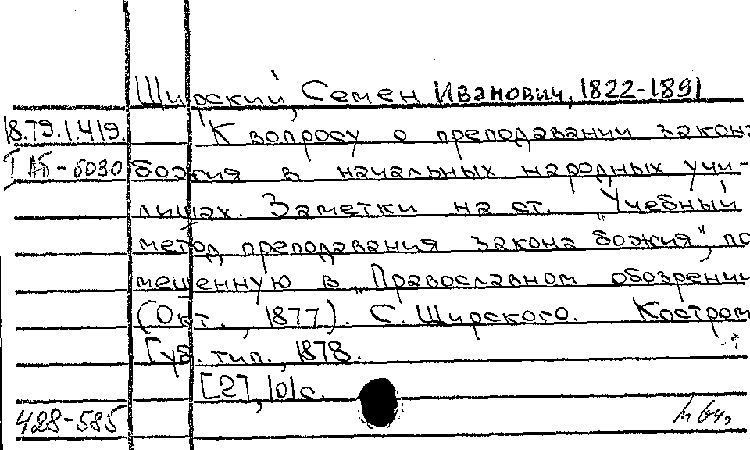 Ширский, Семен Иванович, 1822-1891
18.79.1.419. К вопросу о преподавании закона
божия в начальных народных учи-
лищах. Заметки на ст. "Учебный
метод преподавания закона божия", по
мещенную в "Православном обозрении
(Окт., 1877). С. Ширского. Костром
Губ. тип., 1878.
[2], 101с.
428-585